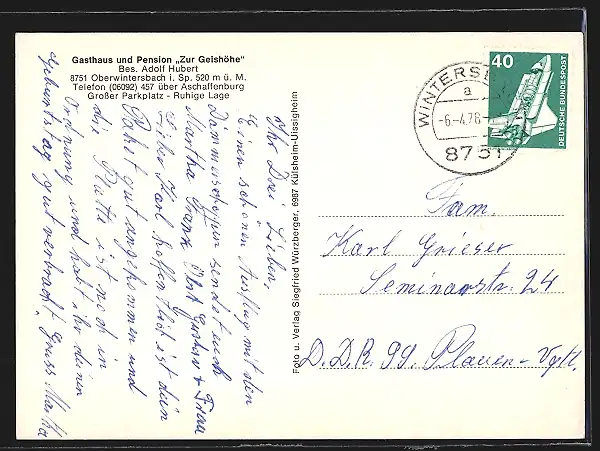 Gasthaus und Pension „Zur Geishöhe"
Bes. Adolf Hubert
8751 Oberwintersbach i. Sp. 520 m ü. M.
Telefon (06092) 457 über Aschaffenburg
Großer Parkplatz - Ruhige Lage
Ihr Drei Lieben,
Einen schönen Ausflug mit den
sendet euch
Martha Frank Gustav + Frau
Lieber Karl hoffentlich ist dein
Paket gut angekommen und
die Platte ist noch in
Ordnung und habt ihr deinen
Geburtstag gut verbracht. Gruss Martha
Foto u. Verlag Siegfried Würzberger, 6987 Külsheim-Uissigheim
40
DEUTSCHE BUNDESPOST
WINTERSB
a
-6.-4.78-
8751
Fam.
Karl Grieser
Seminarstr. 24
D.D.R. 99 Plauen-Vgtl.